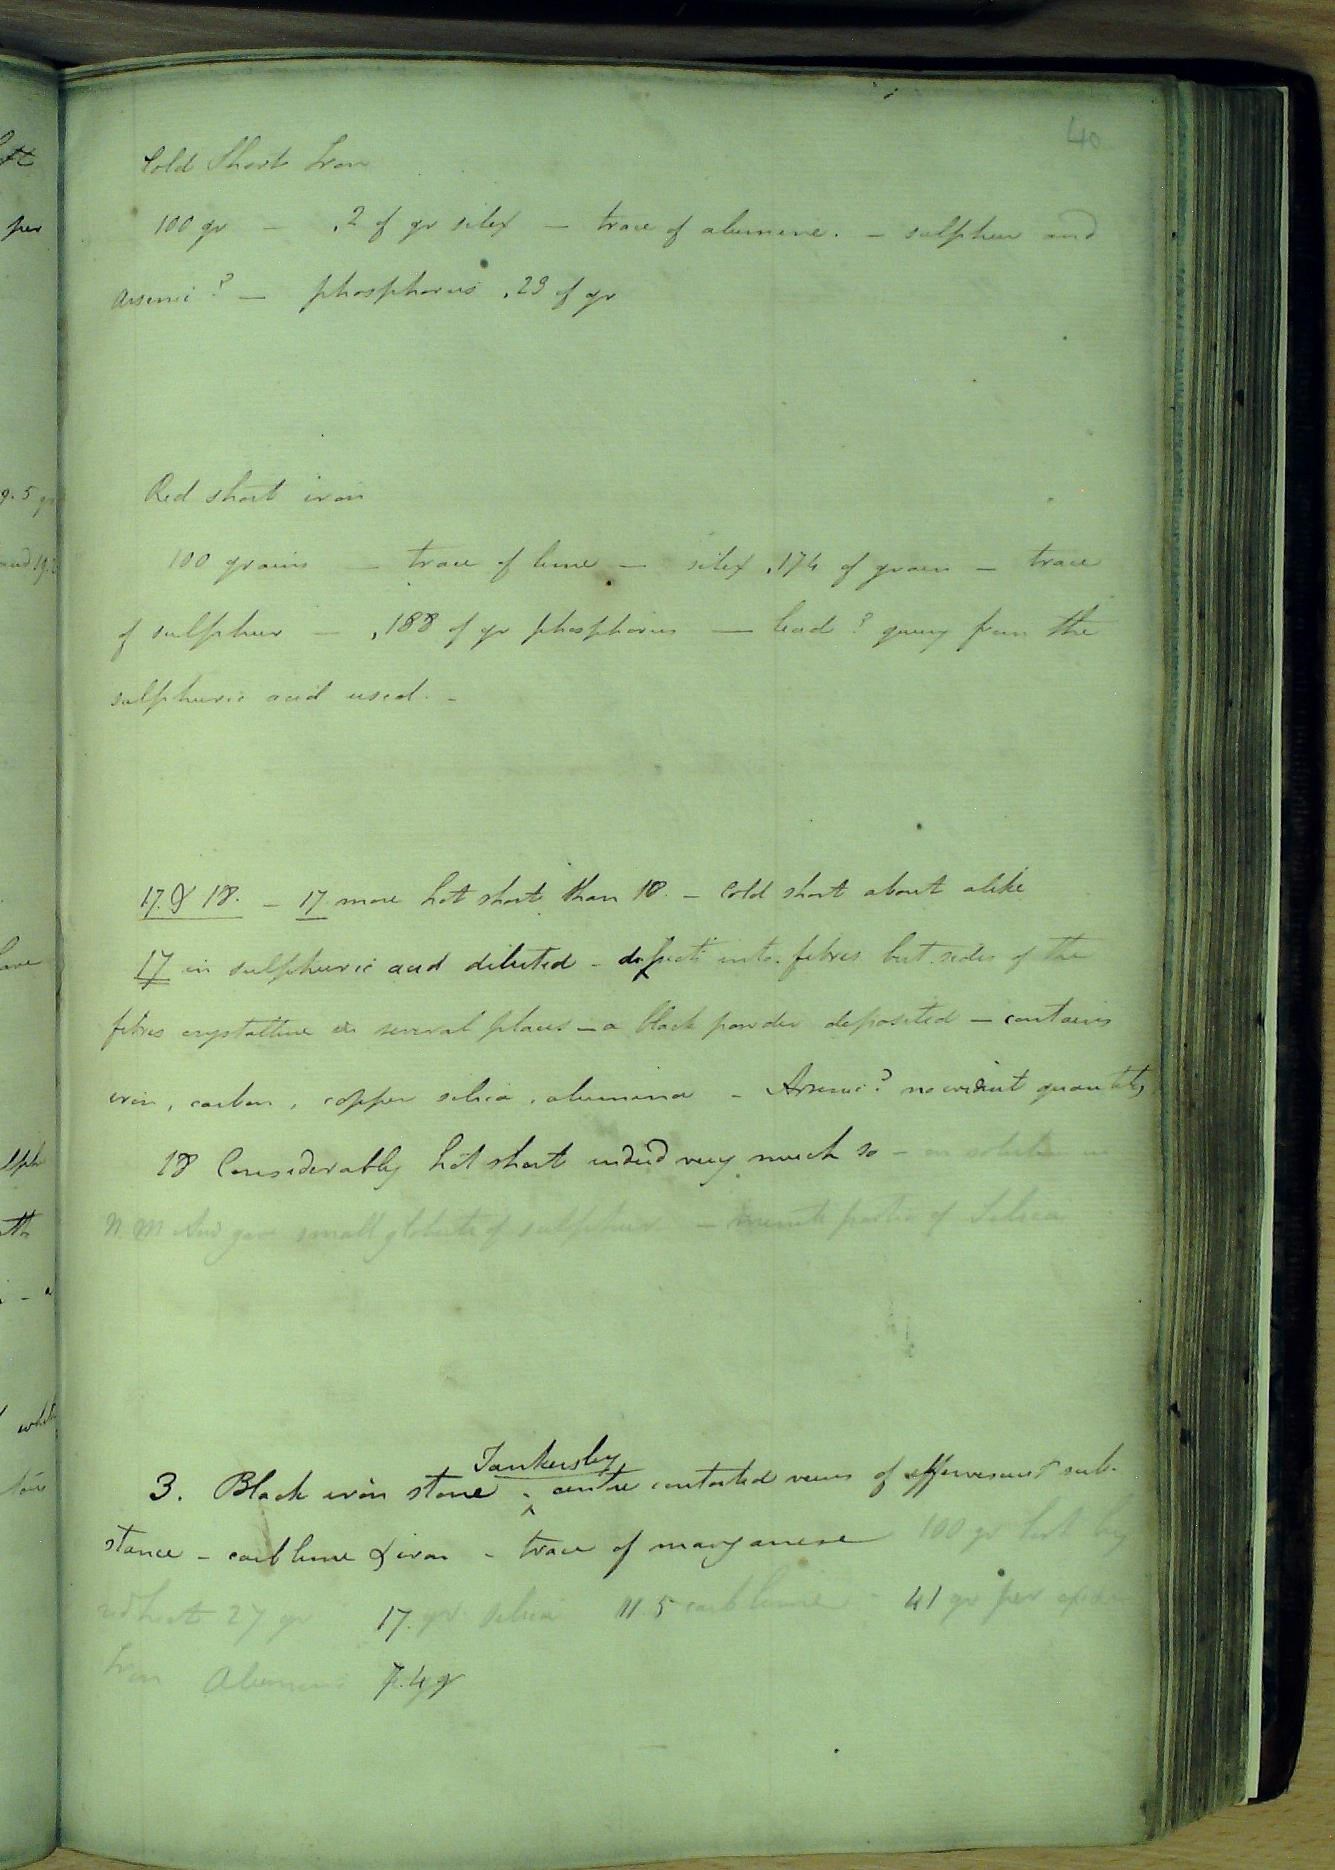 40
Cold Short Iron
100 gr - .2 of gr silex - trace of alumine. - sulphur and
Arsenic? - phosphorus .29 of gr
Red short iron
100 grains - trace of lime - silex .174 of grain - trace
of sulphur - .188 of gr phosphorus - lead? query from the
sulphuric acid used. -
17 & 18. - 17 more hot short than 18 - Cold short about alike
17 in sulphuric acid diluted - into fibres but sides of the
fibres crystalline in several places - a black powder deposited - contains
iron, carbon, copper silica, alumina - Arsenic? no evident quantity
18 Considerably hot short indeed very much so - on solution in
N M Acid gave small globules of sulphur - minute portion of Silica
Tankersley
3. Black iron stone - centre contorted veins of effervescent sub-
stance - carb lime & iron - trace of manganese 100 gr lost by
red heat 27 gr 17. gr silica 11.5 carb lime - 41 gr per oxide
Iron Alumina 7.4 gr
ft
per
g. 5 gr
and 19.
have
sulph
the
- a
white